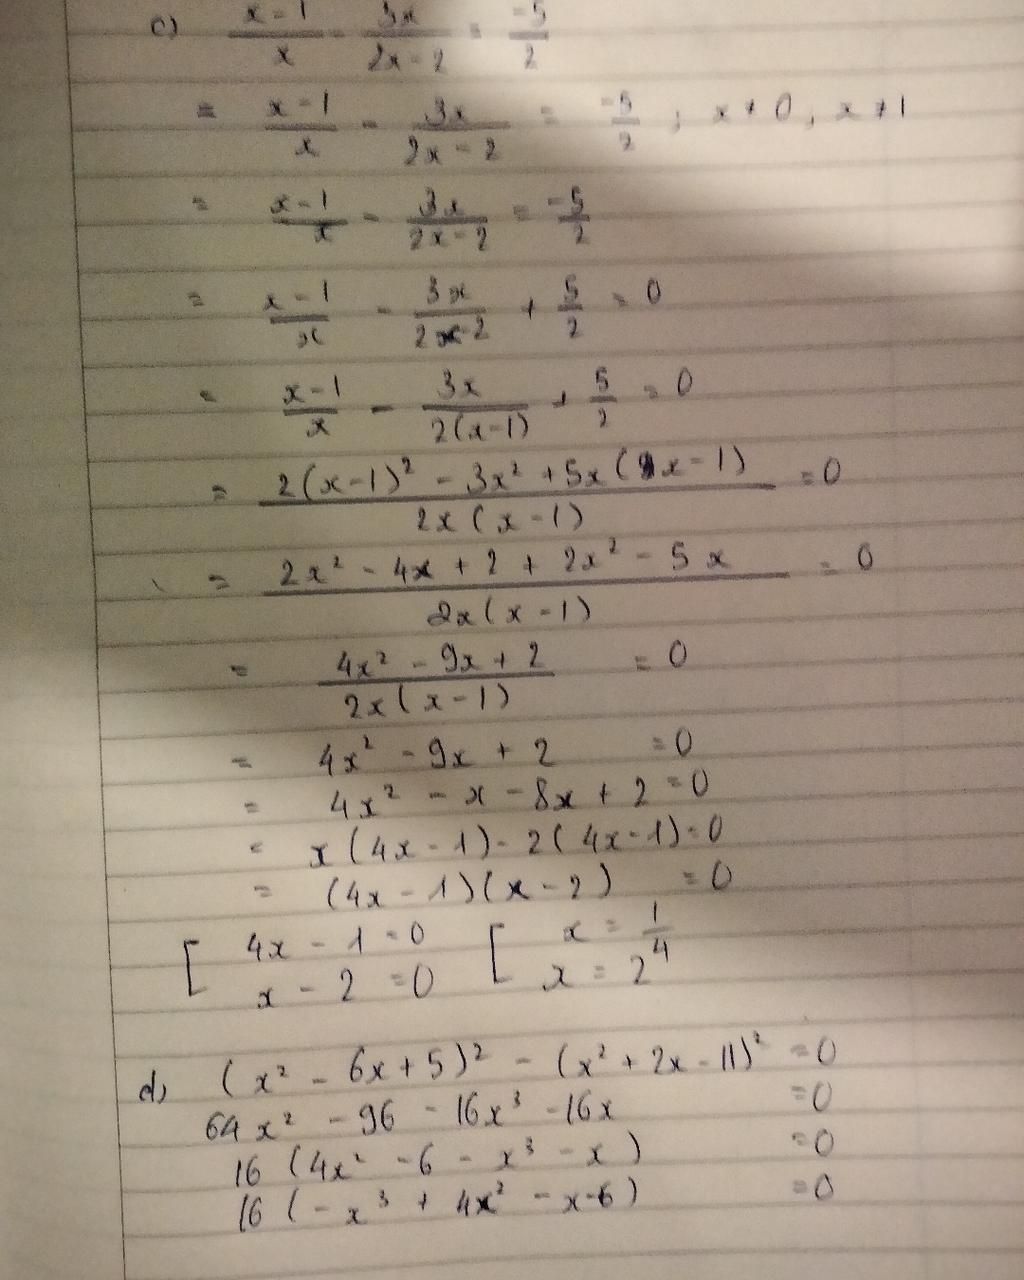 c) (x-1)/x - 3x/(2x-2) = -5/2
= (x-1)/x - 3x/(2x-2) = -5/2 ; x ≠ 0, x ≠ 1
= (x-1)/x - 3x/(2x-2) = -5/2
= (x-1)/x - 3x/(2x-2) + 5/2 = 0
= (x-1)/x - 3x/(2(x-1)) + 5/2 = 0
= (2(x-1)² - 3x² + 5x(x-1))/(2x(x-1)) = 0
= (2x² - 4x + 2 + 2x² - 5x)/(2x(x-1)) = 0
= (4x² - 9x + 2)/(2x(x-1)) = 0
= 4x² - 9x + 2 = 0
= 4x² - x - 8x + 2 = 0
= x(4x - 1) - 2(4x - 1) = 0
= (4x - 1)(x - 2) = 0
[ 4x - 1 = 0 [ x = 1/4
x - 2 = 0 x = 2
d) (x² - 6x + 5)² - (x² + 2x - 11)² = 0
64x² - 96 - 16x³ - 16x = 0
16(4x² - 6 - x³ - x) = 0
16(-x³ + 4x² - x - 6) = 0